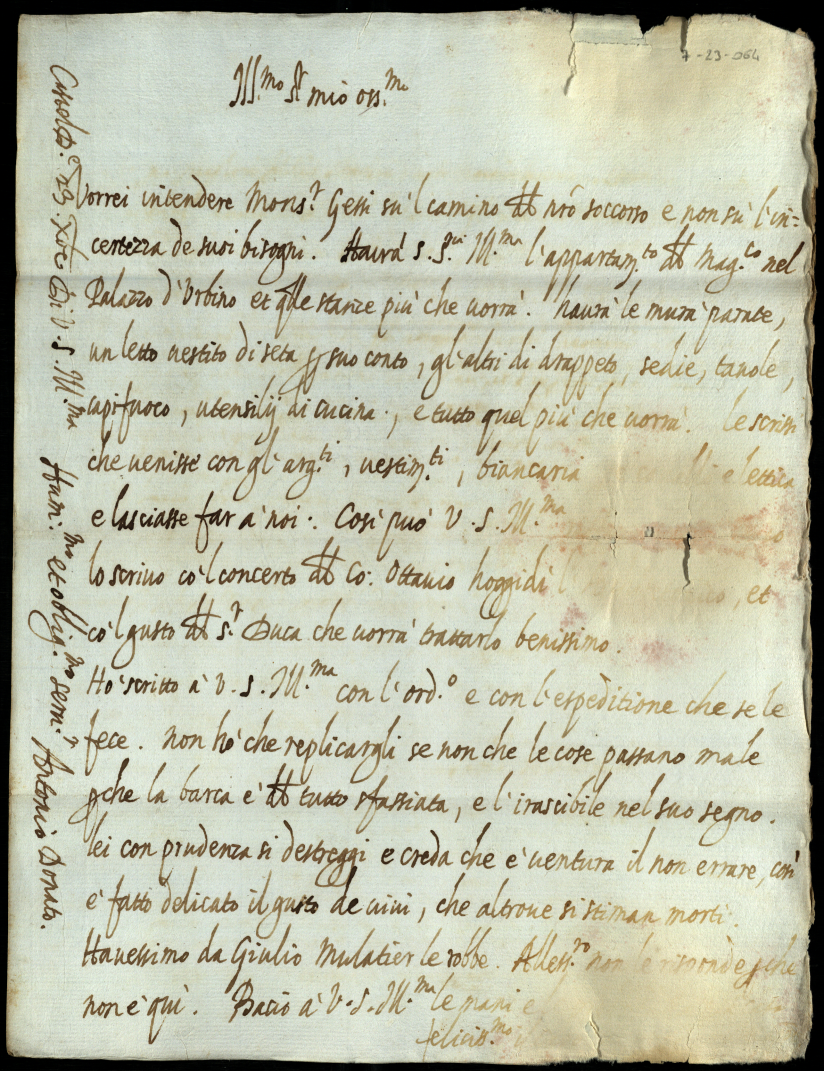 7-23-064
Ill.mo Sr mio oss.mo
Vorrei intendere Mons.r Gessi sù 'l camino del nrõ soccorso e non sù l'in=
certezza de suoi bisogni. Haurà S. S. Ill.ma l'appartam.to del Mag.co nel
Palazzo d'Urbino et q̃lle stanze più che uorrà. haurà le mura parate,
un letto uestito di seta p suo conto, gl'altri di drappeto, sedie, tauole,
capifuoco, utensilij di cucina, e tutto quel più che uorrà. le scrissi
che uenisse con gl'arg.ti, uestim.ti, biancaria e lettica
e lasciasse far à noi. Così può V. S. Ill.ma
lo scriuo cò 'l concerto del Co: Ottauio hoggidì et
cò 'l gusto del S.r Duca che uorrà trattarlo benissimo.
Hò scritto à V. S. Ill.ma con l'ord.o e con l'espeditione che se le
fece. non hò che replicargli se non che le cose passano male
pche la barca è del tutto sfassiata, e l'irascibile nel suo segno.
lei con prudenza si destreggi e creda che è uentura il non errare, così
è fatto delicato il gusto de uiui, che altroue si stiman morti.
Hauessimo da Giulio Mulatier le robbe. Aless.ro non le risponde pche
non è quì. Bacio à V. S. Ill.ma le mani e
felicis.mo
23. Xbre Di V. S. Ill.ma Hum.mo et oblig.mo ser.r Antonio Donato.